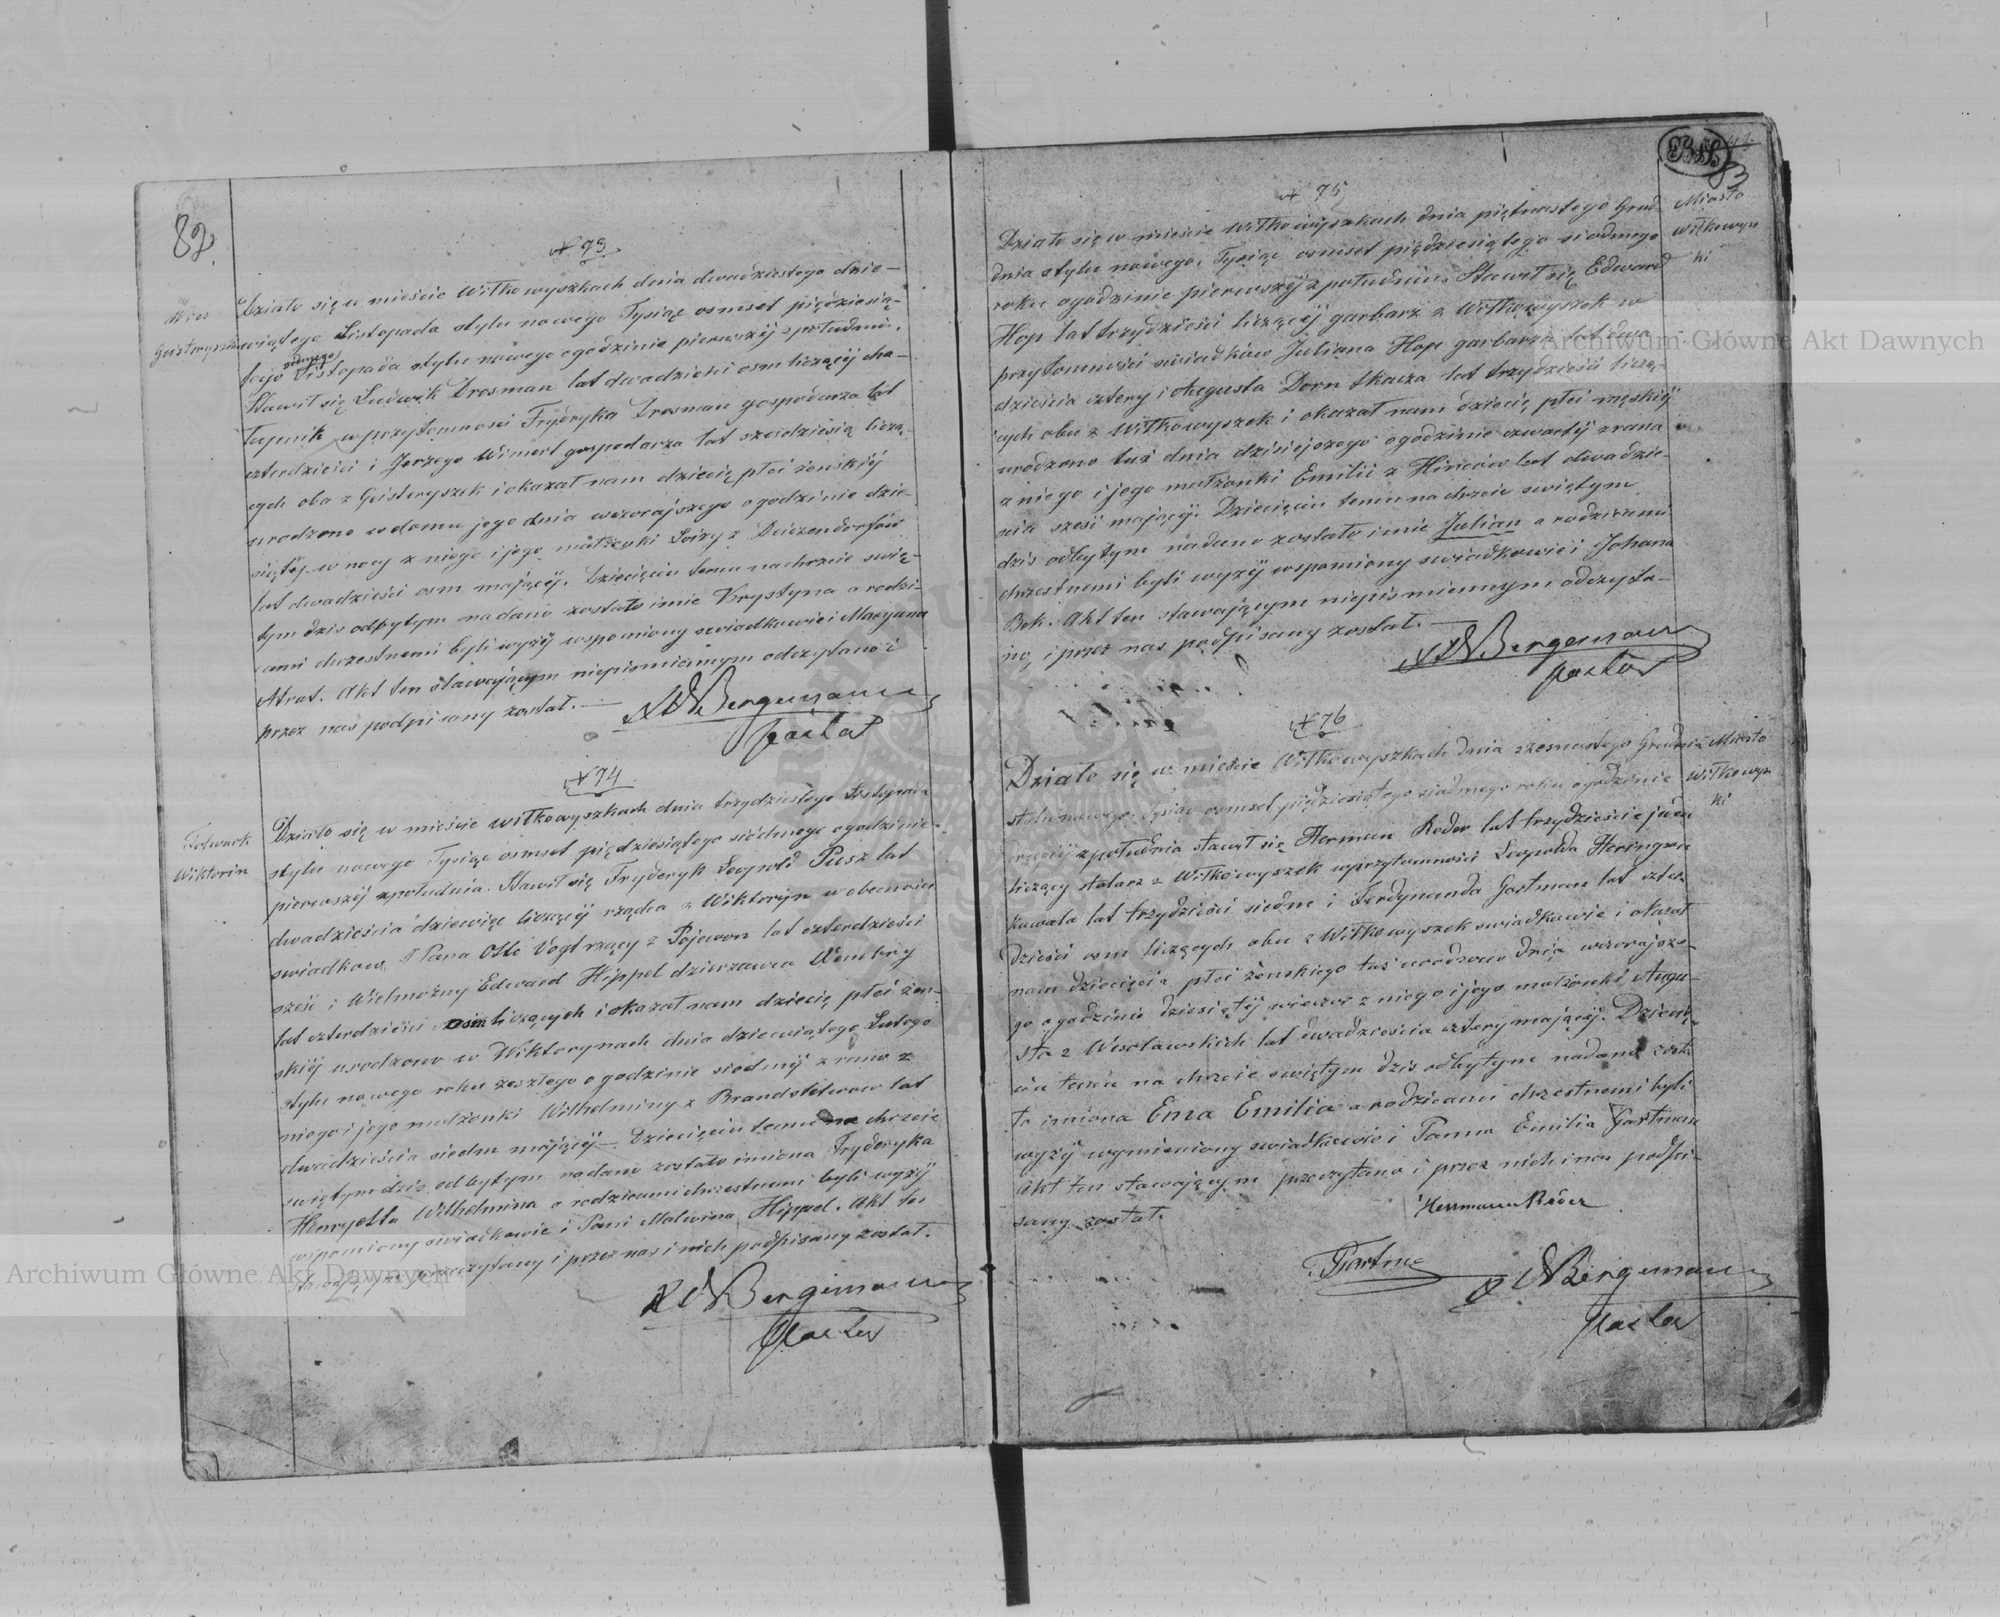 82.
N 73
Wieś
Działo się w mieście Wiłkowyszkach dnia dwudziestego dzie-
wiątego Listopada stylu nowego Tysiąc osmset pięćdziesią-
tego siodmego Listopada stylu nowego o godzinie pierwszej z południa.
Stawił się Ludwik Drosman lat dwadzieścia osm liczący cha-
łupnik w przytomności Frydryka Drosman gospodarza lat
czterdzieści i Jerzego Wimert gospodarza lat sześdziesią liczą-
cych oba z Geisteryszek i okazał nam dziecię płci żeńskiéj
urodzone w domu jego dnia wczorajszego o godzinie dzie-
siątej w nocy z niego i jego małżonki Loizy z
lat dwadzieścia osm mającéj. Dziecięciu temu na chrzcie swię-
tym dzis odbytym nadano zostało imie Krystyna a rodzi-
cami chrzestnemi byli wyżéj wspomiony swiadkowie i Maryanna
Atrat. Akt ten stawającym niepismiennym odczytano i
przez nas podpisany został. —
Bergemann
Pastor
N 74
Folwark
Wiktorin
Działo się w mieście Wiłkowyszkach dnia trzydziestego Listopada
stylu nowego Tysiąc osmset pięćdziesiątego siódmego o godzinie
pierwszéj z południa. Stawił się Fryderyk Leopold Piesz lat
dwadzieścia dziewięć liczący rządca z Wiktoryn w obecności
swiadkow Pana Otto Vogt rządcy z Pojewon lat czterdzieści
sześć i Wielmożny Edward Hippel dzierzawca
lat czterdzieści osm liczących i okazał nam dziecię płci żeń-
skiéj urodzone w Wiktorynach dnia dziewiątego Lutego
stylu nowego roku zeszłego o godzinie siodméj z rana z
niego i jego małżonki Wilhelminy z Brandsteterow lat
dwadzieścia siedm mającéj — Dziecięciu temu na chrzcie
swiętym dzis odbytym nadane zostało imiona Fryderyka
Henryetta Wilhelmina a rodzicami chrzestnemi byli wyżéj
wspomiony swiadkowie i Pani Malwina Hippel. Akt ten
stawającym przeczytany i przez nas i nich podpisany został.
Bergemann
Pastor
83
N 75
Miasto
Wiłkowysz
ki
Działo się w mieście Wiłkowyszkach dnia piętnastego Grud-
dnia stylu nowego, Tysiąc osmset pięćdziesiątego siodmego
roku o godzinie pierwszéj z południa. Stawił się Edward
Hop lat trzydzieści liczący garbarz z Wiłkowyszek w
przytomności swiadków Juliana Hop garbarza lat dwa-
dzieścia cztery i Augusta Dorn tkacza lat trzydzieści liczą-
cych obu z Wiłkowyszek i okazał nam dziecię płci męskiéj
urodzone tuż dnia dzisiejszego o godzinie czwartéj z rana
z niego i jego małżonki Emilii z Hinców lat dwadzie-
scia sześć mającéj. Dziecięciu temu na chrzcie swiętym
dzis odbytym nadano zostało imie Julian a rodzicami
chrzestnemi byli wyżéj wspomiony swiadkowie i Johana
Bek. Akt ten stawającym niepismiennym odczyta-
no, i przez nas podpisany został. —
Bergemann
Pastor
N 76
Miasto
Wiłkowysz
ki
Działo się w mieście Wiłkowyszkach dnia szesnastego Grudnia
stylu nowego Tysiąc osmset pięćdziesiątego siodmego roku o godzinie
trzeciéj z południa stawił się Herman Reder lat trzydzieście jeden
liczący stolarz z Wiłkowyszek w przytomności Leopolda Heringson
kowala lat trzydzieści siedm i Ferdynanda Gortman lat czter-
dzieści osm liczących obu z Wiłkowyszek swiadkowie i okazał
nam dziecięcia płci żeńskiego tuż urodzone dnia wczorajsze-
go o godzinie dziesiątéj wieczor z niego i jego małżonki Augu-
sta z Wesoławskich lat dwadzieścia cztery mającéj. Dziecię-
ciu temu na chrzcie swiętym dzis odbytym nadane zosta-
ło imiona Ema Emilia a rodzicami chrzestnemi byli
wyżéj wymieniony swiadkowie i Panna Emilia Gortman
Akt ten stawającym przeczytano i przez nich i nas podpi-
sany został.
Herrmann Reder
Gortman
Bergemann
Pastor
Archiwum Główne Akt Dawnych
Archiwum Główne Akt Dawnych